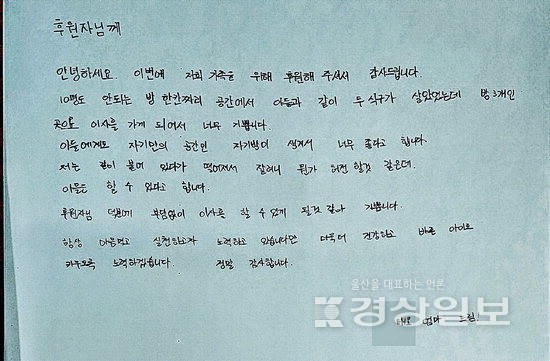 후원자님께
안녕하세요. 이번에 저희 가족을 위해 후원해 주셔서 감사드립니다.
10평도 안되는 방 한칸짜리 공간에서 아들과 같이 두 식구가 살았었는데 방 3개인
곳으로 이사를 가게 되어서 너무 기쁩니다.
아들에게도 자기만의 공간인 자기방이 생겨서 너무 좋다고 합니다.
저는 같이 붙어 있다가 떨어져서 잘려니 뭔가 허전할것 같은데.
아들은 할 수 있다고 합니다.
후원자님 덕분에 부담없이 이사를 할 수 있게 된것 같아 기쁩니다.
항상 마음먹고 실천하고자 노력하고 있습니다만 더욱더 건강하고 바른 아이로
키우도록 노력하겠습니다. 정말 감사합니다.
울산을 대표하는 언론
경상일보
엄마 드림!